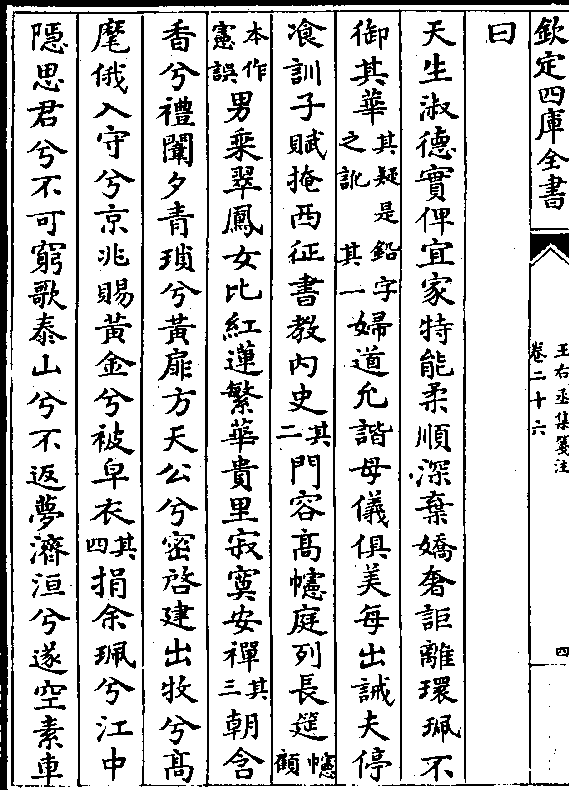 欽定四庫全書
王右丞集箋注
卷二十六
四
曰
天生淑德實俾宜家特能柔順深棄嬌奢詎離環珮不
御其華其疑是鉛字之訛其一婦道允諧母儀俱美每出誡夫停
飡訓子賦掩西征書教内史其二門容髙幰庭列長筵幰顧
本作憲誤男乗翠鳳女比紅蓮繁華貴里寂寞安禪其三朝含
香兮禮闈夕青瑣兮黃扉方天公兮密啓建出牧兮髙
麾俄入守兮京兆賜黃金兮被皁衣其四捐余珮兮江中
隠思君兮不可窮歌泰山兮不返夢濟洹兮遂空素車